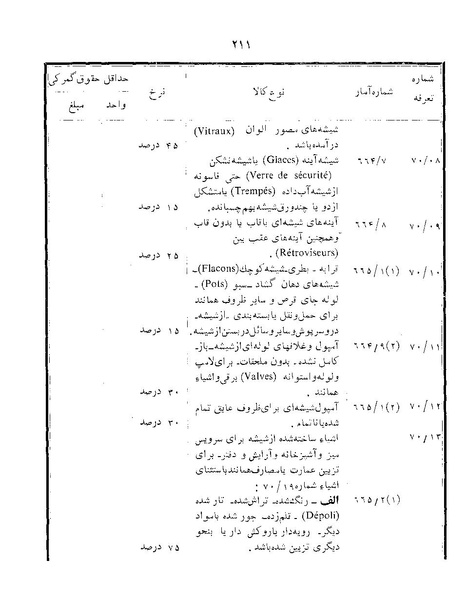 ۲۱۱
شماره تعرفه
شماره آمار
نوع کالا
نرخ
حداقل حقوق گمرکی
واحد
مبلغ
شیشه‌های مصور الوان (Vitraux)
درآمده باشد . ۴۵ درصد
۷۰/۰۸ ۶۶۴/۷ شیشه آینه (Glaces) یا شیشه نشکن
(Verre de sécurité) حتی فاسونه
از شیشه آب داده (Trempés) یا متشکل
از دو یا چند ورق شیشه بهم چسبانده. ۱۵ درصد
۷۰/۰۹ ۶۶۴/۸ آینه‌های شیشه‌ای با قاب یا بدون قاب
و همچنین آینه‌های عقب بین
(Rétroviseurs) . ۲۵ درصد
۷۰/۱۰ ۶۶۵/۱(۱) قرابه - بطری - شیشه کوچک (Flacons) -
شیشه‌های دهان گشاد - سبو (Pots) -
لوله جای قرص و سایر ظروف همانند
برای حمل و نقل یا بسته بندی - از شیشه.
در و سرپوش و سایر وسائل در بستن از شیشه. ۱۵ درصد
۷۰/۱۱ ۶۶۴/۹(۲) آمپول و غلافهای لوله‌ای از شیشه - باز -
کامل نشده - بدون ملحقات - برای لامپ
و لوله و استوانه (Valves) برقی و اشیاء
همانند . ۳۰ درصد
۷۰/۱۲ ۶۶۵/۱(۲) آمپول شیشه‌ای برای ظروف عایق تمام
شده یا ناتمام . ۳۰ درصد
۷۰/۱۳ اشیاء ساخته شده از شیشه برای سرویس
میز و آشپزخانه و آرایش و دفتر - برای
تزیین عمارت یا مصارف همانند باستثنای
اشیاء شماره ۷۰/۱۹ :
۶۶۵/۲(۱) الف - رنگ شده - تراش شده - تار شده
(Dépoli) - قلم زده - جور شده با مواد
دیگر - رویه دار یا روکش دار یا بنحو
دیگری تزیین شده باشد . ۷۵ درصد